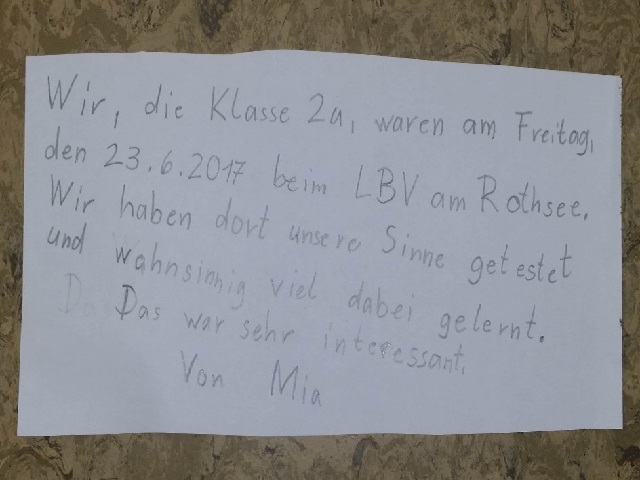 Wir, die Klasse 2a, waren am Freitag,
den 23.6.2017 beim LBV am Rothsee.
Wir haben dort unsere Sinne getestet
und wahnsinnig viel dabei gelernt.
Das war sehr interessant.
Von Mia